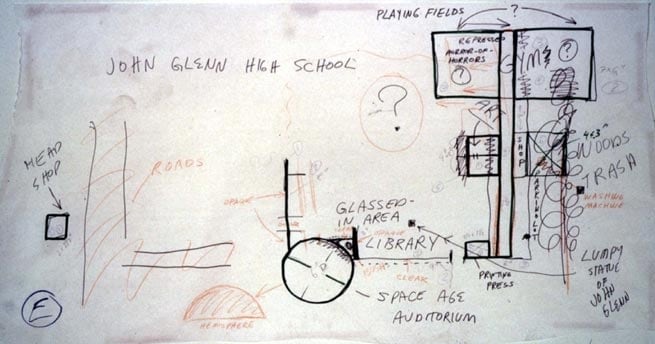 PLAYING FIELDS
?
REPRESSED
HORROR-OF-
HORRORS
?
GYM
?
JOHN GLENN HIGH SCHOOL
?
ART
SHOP
WOODS
HEAD
SHOP
ROADS
TRASH
WASHING
MACHINE
PARKING LOT
GLASSED-
IN AREA
LIBRARY
PRINTING
PRESS
LUMPY
STATUE
OF
JOHN
GLENN
CLEAR
SPACE AGE
AUDITORIUM
HEMISPHERE
E